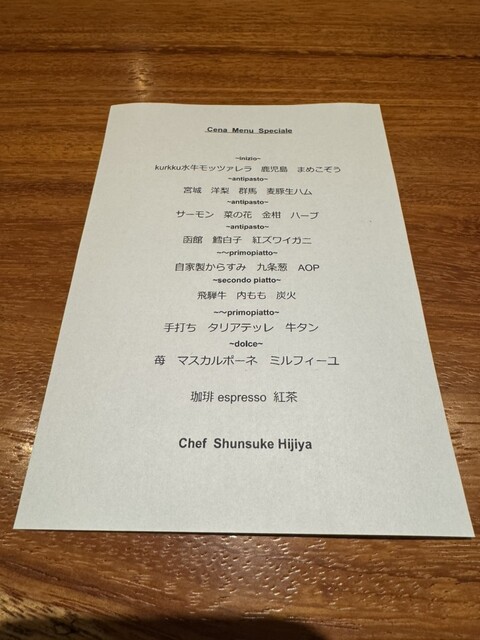 Cena Menu Speciale
~inizio~
kurkku水牛モッツァレラ 鹿児島 まめこぞう
~antipasto~
宮城 洋梨 群馬 麦豚生ハム
~antipasto~
サーモン 菜の花 金柑 ハーブ
~antipasto~
函館 鱈白子 紅ズワイガニ
~~primopiatto~
自家製からすみ 九条葱 AOP
~secondo piatto~
飛騨牛 内もも 炭火
~~primopiatto~
手打ち タリアテッレ 牛タン
~dolce~
苺 マスカルポーネ ミルフィーユ
珈琲 espresso 紅茶
Chef Shunsuke Hijiya